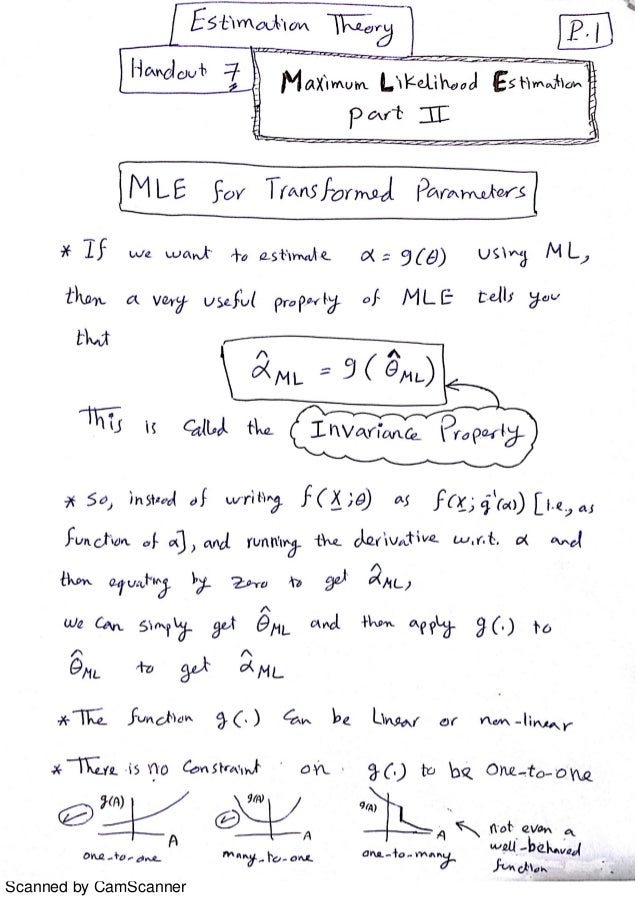 Estimation Theory
P.1
Handout 7
Maximum Likelihood Estimation
part II
MLE for Transformed Parameters
* If we want to estimate α = g(θ) using ML,
then a very useful property of MLE tells you
that
α̂ML = g(θ̂ML)
This is called the Invariance Property
* So, instead of writing f(X;θ) as f(X; g⁻¹(α)) [i.e., as
function of α], and running the derivative w.r.t. α and
then equating by zero to get α̂ML,
we can simply get θ̂ML and then apply g(.) to
θ̂ML to get α̂ML
* The function g(.) can be Linear or non-linear
* There is no constraint on g(.) to be one-to-one
g(A) A
one-to-one
g(A) A
many-to-one
g(A) A
one-to-many
not even a
well-behaved
function
Scanned by CamScanner